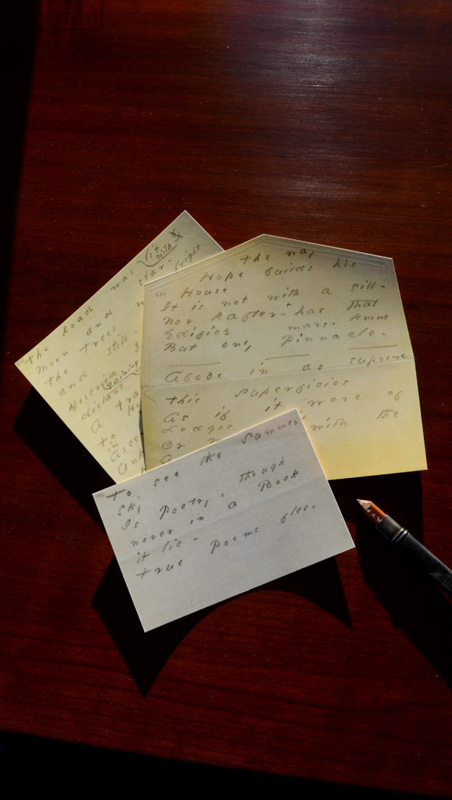 the Road was lit
with
Moon and Star -
the Trees bright
and still -
Descried I
distant
A tra
to
Asce
Unt
the way
Hope builds his
House
It is not with a sill -
nor Rafter - has that
Edifice mars -
But only Pinnacle -
Abode in as supreme
this superficies
As if it were of
Ledges
Or with the
to see the Summer
Sky
Is Poetry, though
never in a Book
it lie -
true Poems flee -